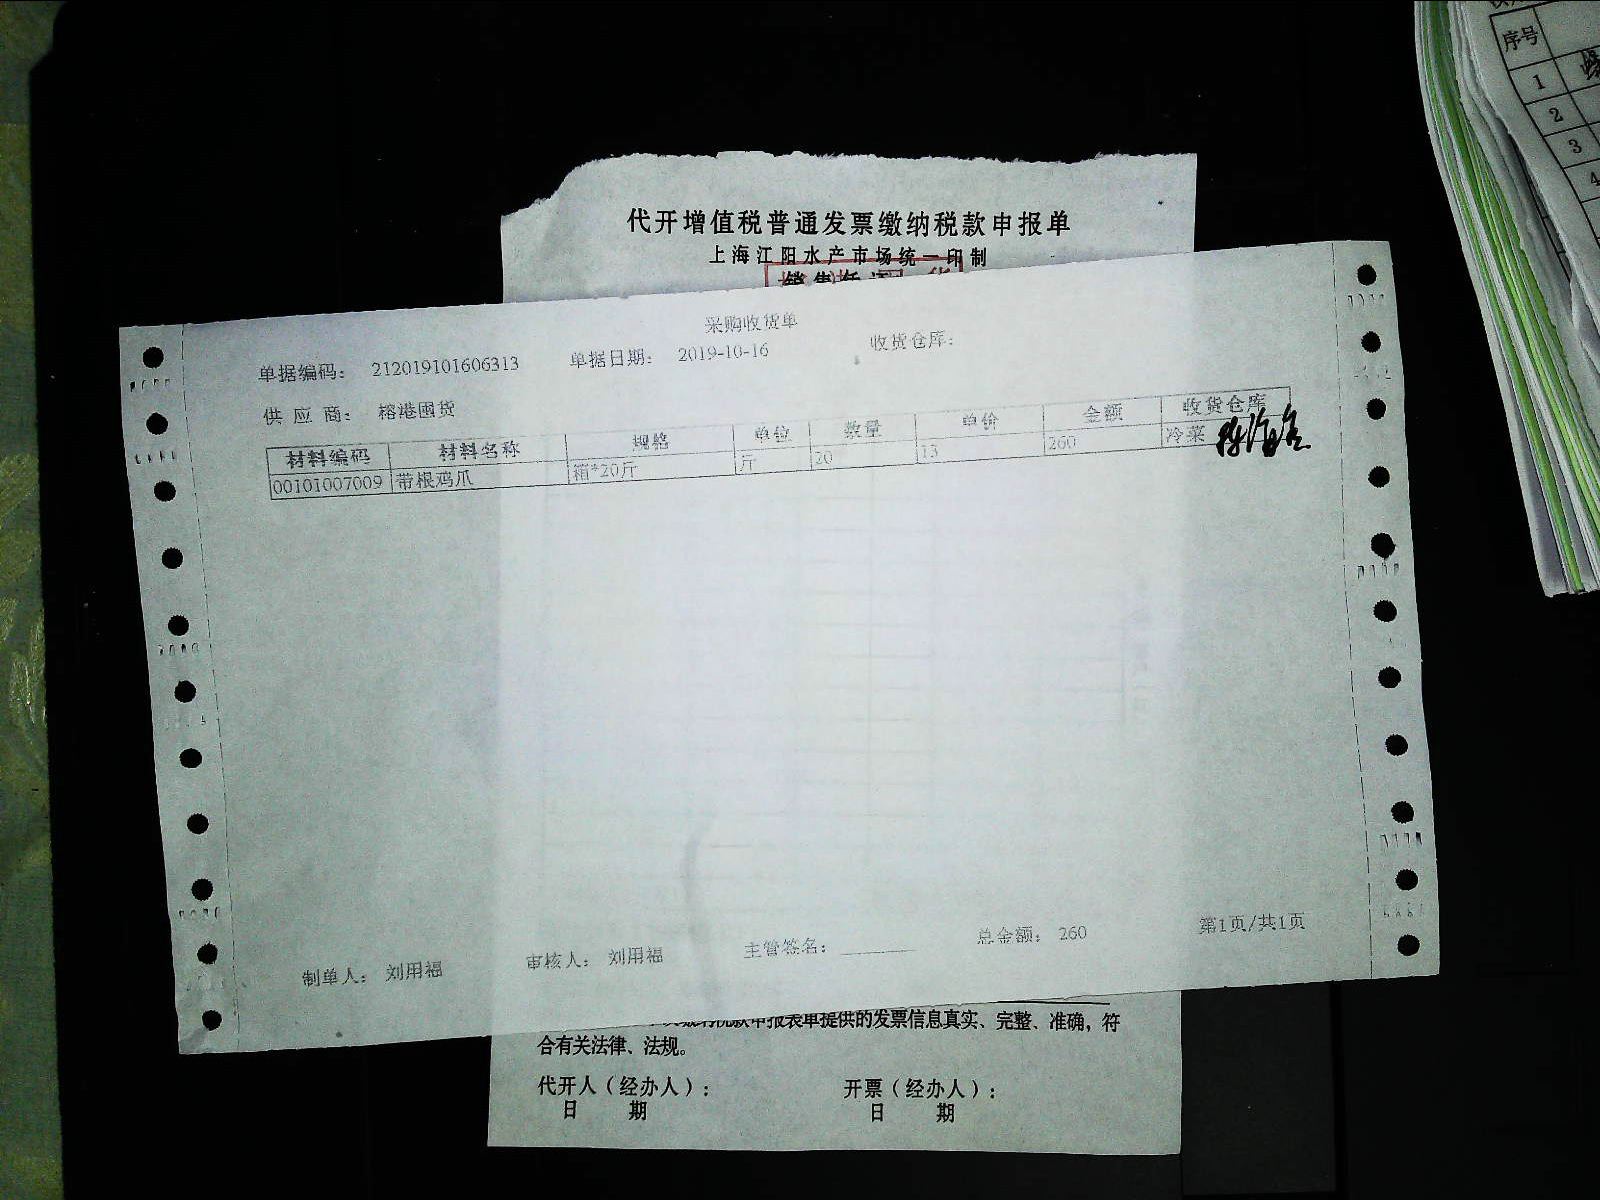 代开增值税普通发票缴纳税款申报单
上海江阳水产市场统一印制
采购收货单
单据编码： 212019101606313 单据日期： 2019-10-16 收货仓库：
供 应 商： 榕港囤货
材料编码 材料名称 规格 单位 数量 单价 金额 收货仓库
00101007009 带根鸡爪 箱*20斤 斤 20 13 260 冷菜
制单人： 刘用福 审核人： 刘用福 主管签名： 总金额： 260 第1页/共1页
缴纳税款申报表单提供的发票信息真实、完整、准确，符
合有关法律、法规。
代开人（经办人）： 开票（经办人）：
日 期 日 期
序号
1
2
3
4